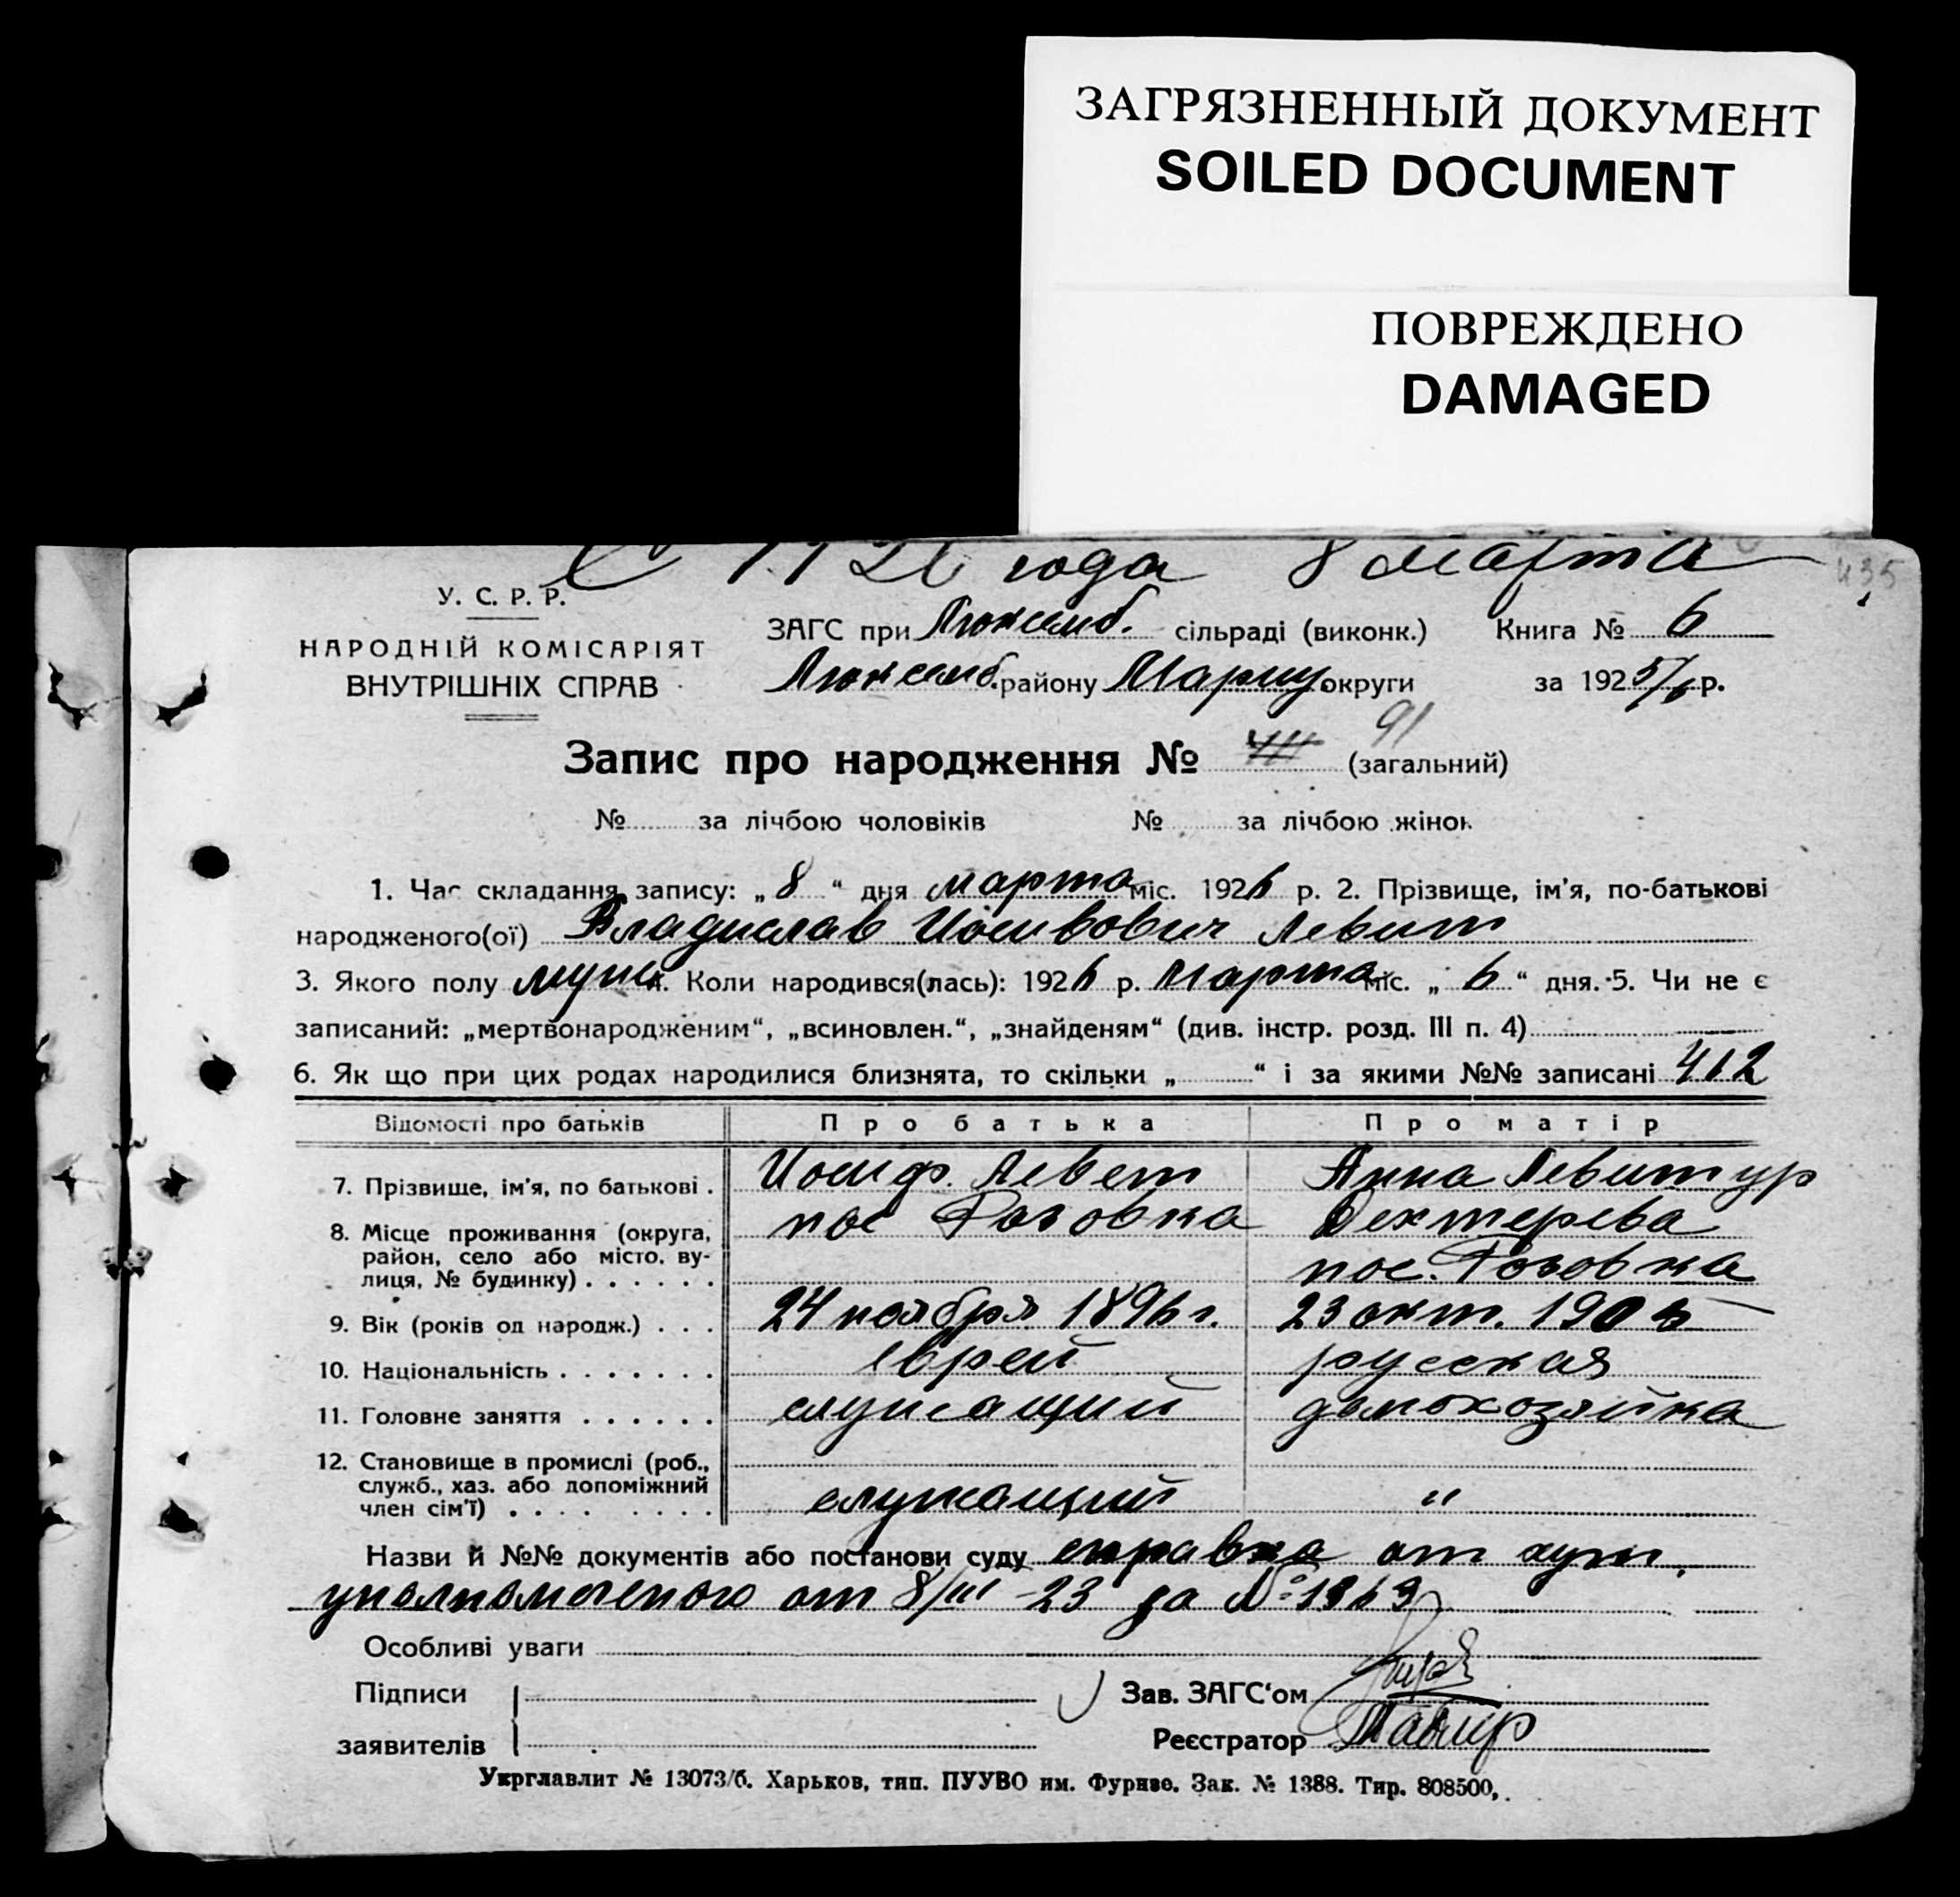 ЗАГРЯЗНЕННЫЙ ДОКУМЕНТ
SOILED DOCUMENT
ПОВРЕЖДЕНО
DAMAGED
С 1926 года 8 марта
435
У. С. Р. Р.
НАРОДНІЙ КОМІСАРІЯТ
ВНУТРІШНІХ СПРАВ
ЗАГС при Люксемб. сільраді (виконк.) Книга № 6
Люксемб. району Мариу. округи за 1925/6 р.
Запис про народження № 91 (загальний)
№ за лічбою чоловіків № за лічбою жінок
1. Час складання запису: „ 8 “ дня марта міс. 1926 р. 2. Прізвище, ім'я, по-батькові
народженого(ої) Владислав Иосивович Левит
3. Якого полу муж. 4. Коли народився(лась): 1926 р. Марта міс. „ 6 “ дня. 5. Чи не є
записаний: „мертвонародженим“, „всиновлен.“, „знайденям“ (див. інстр. розд. III п. 4)
6. Як що при цих родах народилися близнята, то скільки „ “ і за якими №№ записані 412
Відомості про батьків Про батька Про матір
7. Прізвище, ім'я, по батькові . Иосиф. Левет Анна Левит ур
8. Місце проживання (округа, район, село або місто, вулиця, № будинку) . . . . . . пос Розовка Дехтерева
пос. Розовка
9. Вік (років од народж.) . . . 24 ноября 1896 г. 23 окт. 1905
10. Національність . . . . . . . еврей русская
11. Головне заняття . . . . . . служащий домохозяйка
12. Становище в промислі (роб., служб., хаз. або допоміжний член сім'ї) . . . . . . . . служащий "
Назви й №№ документів або постанови суду справка от хут.
уполномоченого от 8/III - 23 за №
Особливі уваги
Підписи
заявителів
Зав. ЗАГС'ом
Реєстратор
Укрглавлит № 13073/б. Харьков, тип. ПУУВО им. Фрунзе. Зак. № 1388. Тир. 808500,